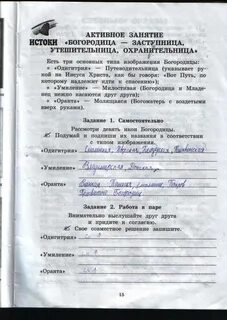 ИСТОКИ
АКТИВНОЕ ЗАНЯТИЕ
«БОГОРОДИЦА — ЗАСТУПНИЦА,
УТЕШИТЕЛЬНИЦА, ОХРАНИТЕЛЬНИЦА»
Есть три основных типа изображения Богородицы:
• «Одигитрия» — Путеводительница (указывает ру-
кой на Иисуса Христа, как бы говоря: «Вот Путь, по
которому надлежит идти к спасению»);
• «Умиление» — Милостивая (Богородица и Младе-
нец нежно касаются друг друга);
• «Оранта» — Молящаяся (Богоматерь с воздетыми
вверх руками).
Задание 1. Самостоятельно
Рассмотри девять икон Богородицы.
Подумай и подпиши их названия в соответствии
с типом изображения.
«Одигитрия»
«Умиление» Владимирская, Донская
«Оранта»
Задание 2. Работа в паре
Внимательно выслушайте друг друга
и придите к согласию.
Свое совместное решение запишите.
«Одигитрия» —
«Умиление» —
«Оранта» —
15